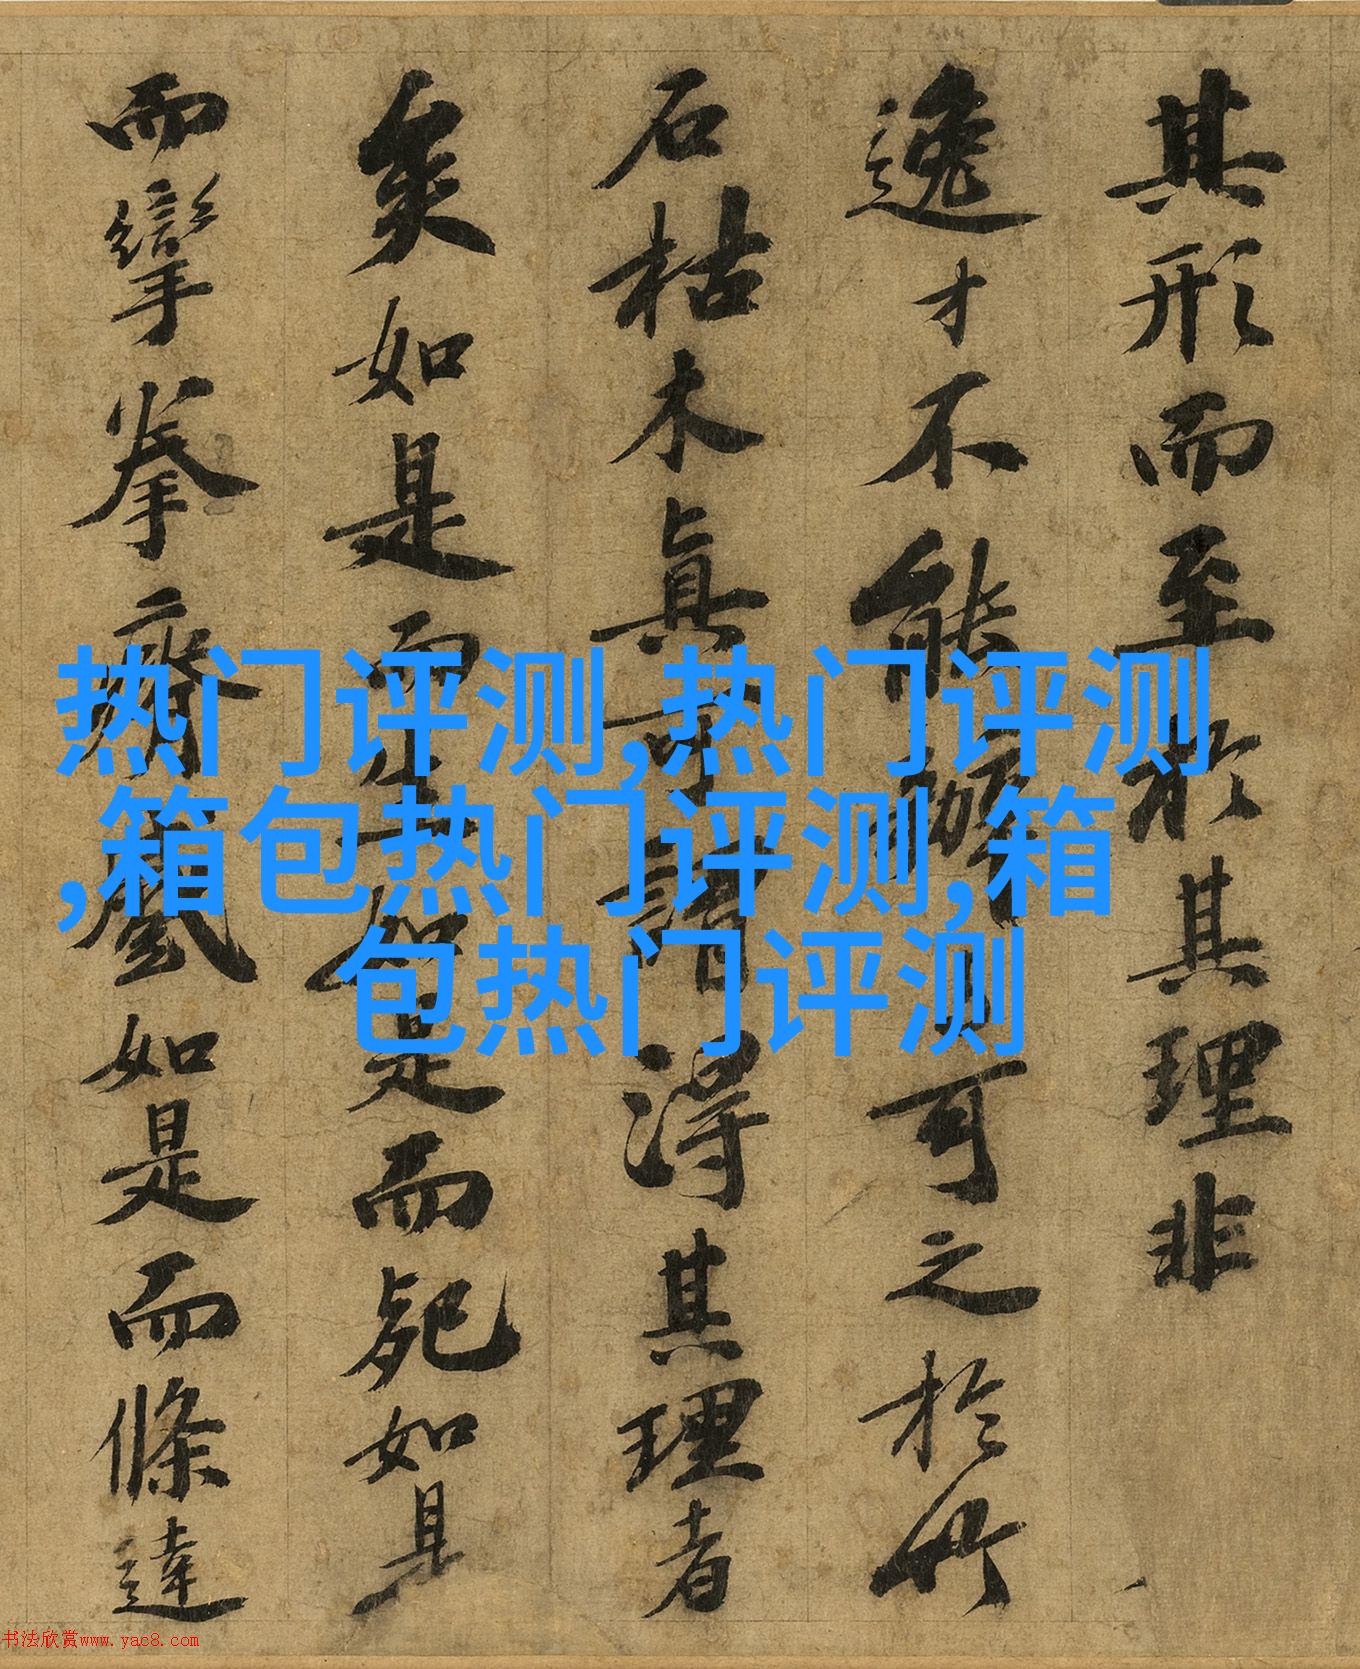 其形而至於其理非
逸才不能辦可之於竹
石枯木眞可謂得其理者
矣如是而生如是而死如是
而攣拳瘠蹙如是而條達
热门评测,热门评测
,箱包热门评测,箱
包热门评测
书法欣赏www.yac8.com